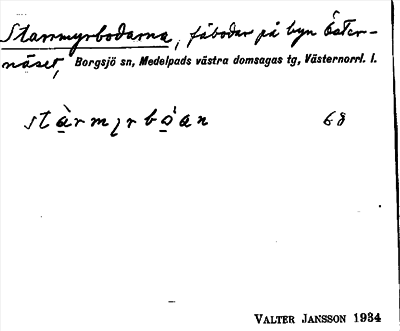 Starrmyrbodarna, fäbodar på byn Öster-
näset, Borgsjö sn, Medelpads västra domsagas tg, Västernorrl. l.
stàrmyrbóan 68
VALTER JANSSON 1934